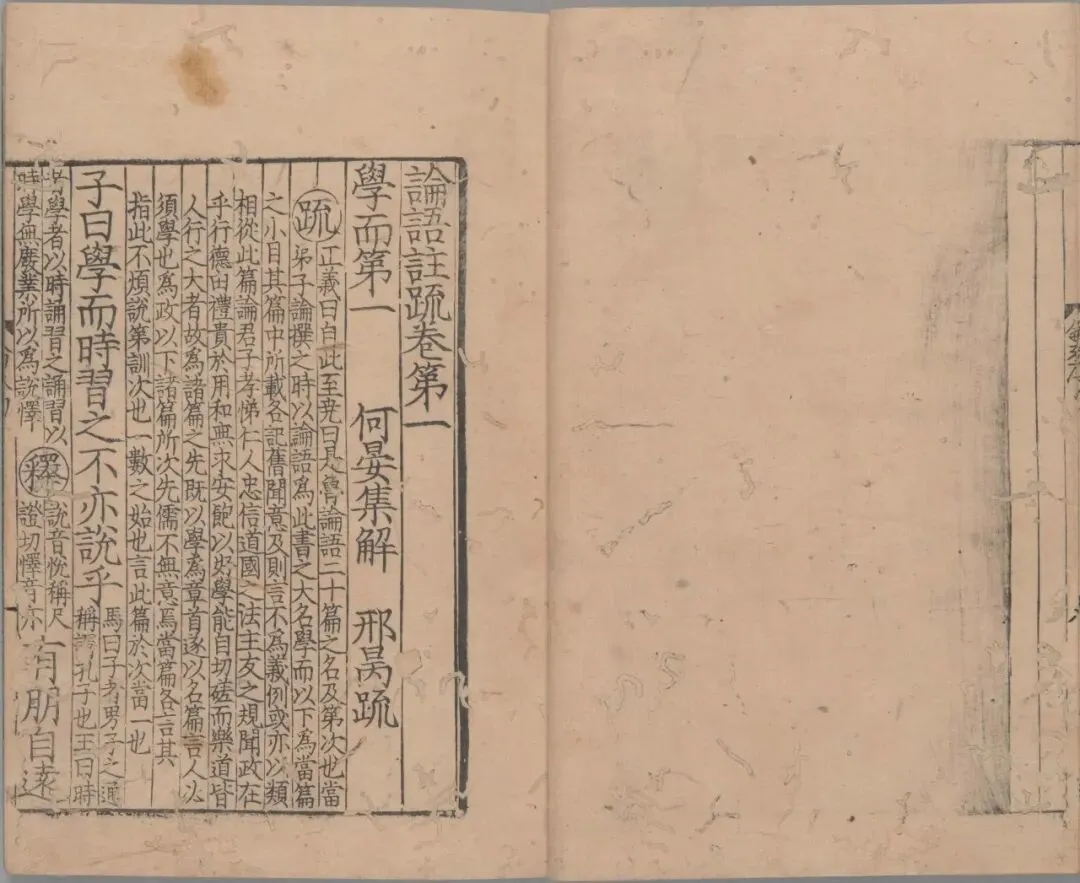 論語註疏卷第一
學而第一 何晏集解 邢昺疏
疏 正義曰自此至堯曰是魯論語二十篇之名及第次也當
弟子論撰之時以論語爲此書之大名學而以下爲當篇
之小目其篇中所載各記舊聞意及則言不爲義例或亦以類
相從此篇論君子孝悌仁人忠信道國之法主友之規聞政在
乎行德由禮貴於用和無求安飽以好學能自切磋而樂道皆
人行之大者故爲諸篇之先既以學爲章首遂以名篇言人必
須學也爲政以下諸篇所次先儒不無意焉當篇各言其
指此不煩說第訓次也一數之始也言此篇於次當一也
子曰學而時習之不亦說乎 馬曰子者男子之通
稱謂孔子也王曰時
學者以時誦習之誦習以
時學無廢業所以爲說懌 釋 說音悅稱尺
證切懌音亦 有朋自遠